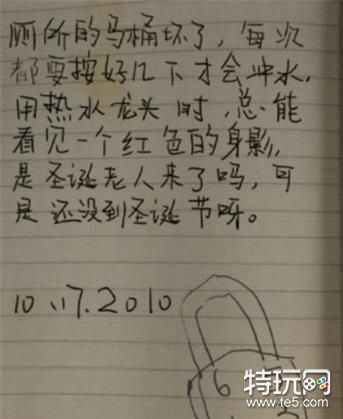 厕所的马桶坏了，每次
都要按好几下才会冲水，
用热水龙头时，总能
看见一个红色的身影，
是圣诞老人来了吗，可
是还没到圣诞节呀。
10.17.2010
6
特玩网
www.te5.com